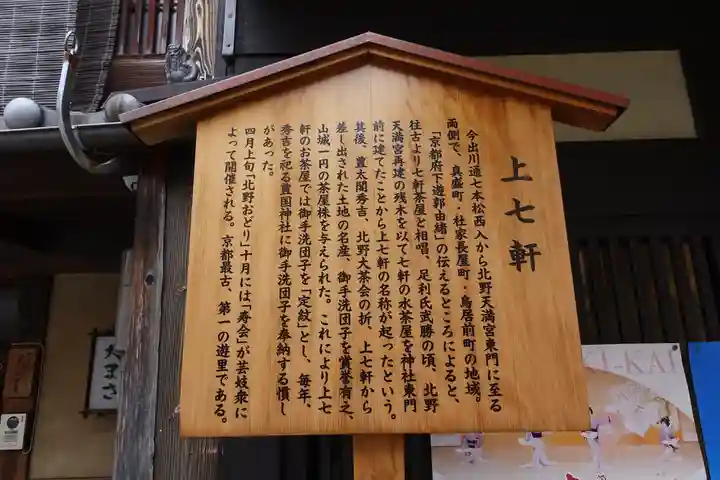 上七軒
今出川通七本松西入から北野天満宮東門に至る
両側で、真盛町・社家長屋町・鳥居前町の地域。
「京都府下遊郭由緒」の伝えるところによると、
往古より七軒茶屋と相唱、足利氏武勝の頃、北野
天満宮再建の残木を以て七軒の水茶屋を神社東門
前に建てたことから上七軒の名称が起ったという。
其後、豊太閤秀吉、北野大茶会の折、上七軒から
差し出された土地の名産、御手洗団子を賞誉有之、
山城一円の茶屋株を与えられた。これにより上七
軒のお茶屋では御手洗団子を「定紋」とし、毎年、
秀吉を祀る豊国神社に御手洗団子を奉納する慣し
があった。
四月上旬「北野おどり」十月には「寿会」が芸妓衆に
よって開催される。京都最古、第一の遊里である。
KI-KAI